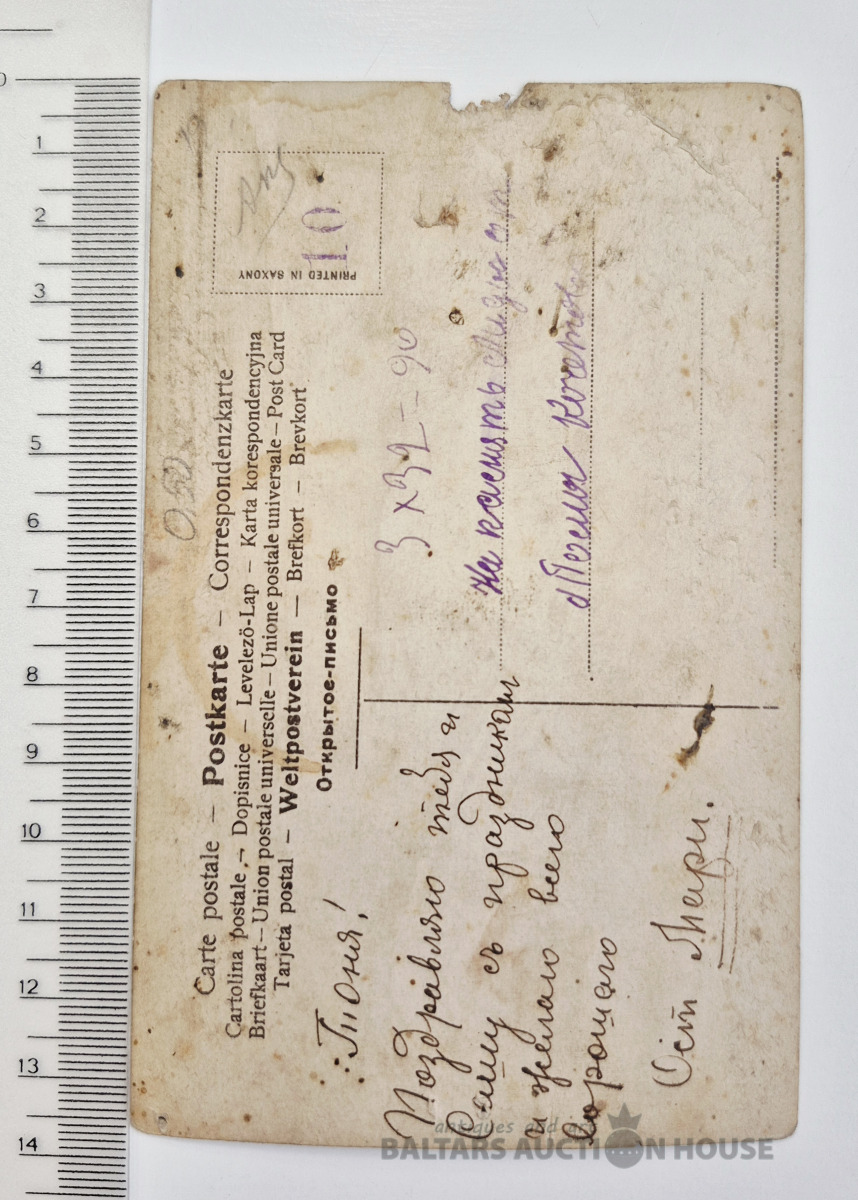 Carte postale — Postkarte — Correspondenzkarte
Cartolina postale — Dopisnice — Levelező-Lap — Karta korespondencyjna
Briefkaart — Union postale universelle — Unione postale universale — Post Card
Tarjeta postal — Weltpostverein — Brefkort — Brevkort
Открытое-письмо
PRINTED IN SAXONY
10
Тоня!
Поздравляю тебя и
Сашу съ праздникам
и желаю всего
хорошаго
Ост Мари.
3 x 32 = 96
На память
0
1
2
3
4
5
6
7
8
9
10
11
12
13
14
antiques and
BALTARS AUCTION HOUSE